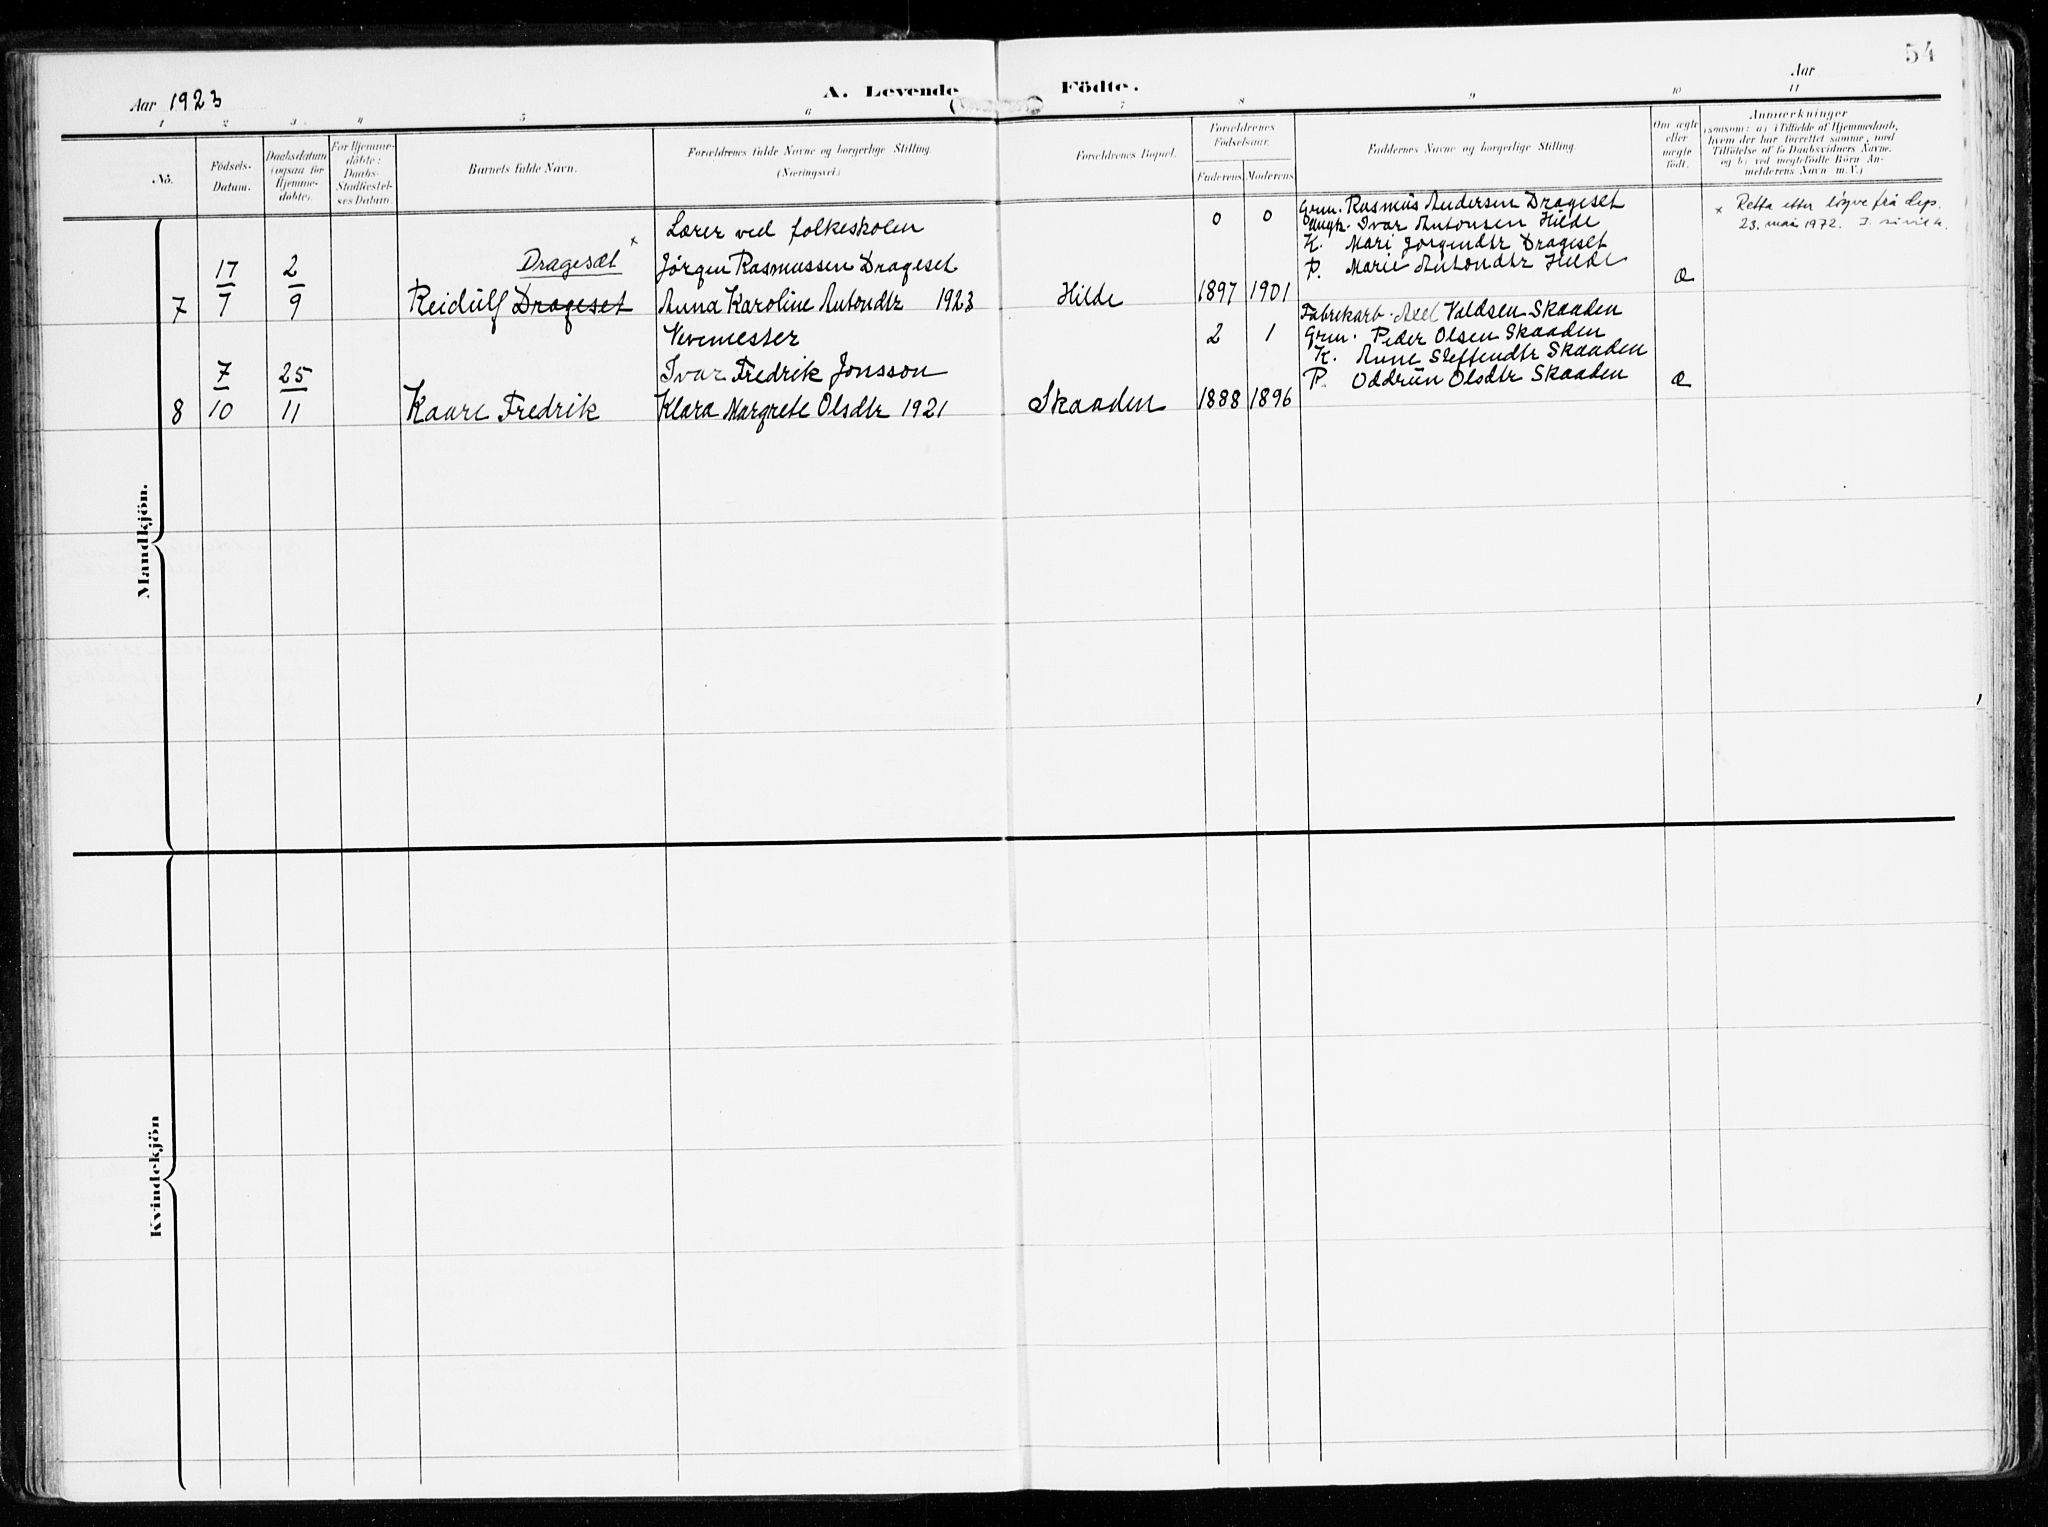 54
Aar 1923
A. Levende Födte.
Aar
1 2 3 4 5 6 7 8 9 10 11
No.
Födsels-Datum.
Daabsdatum (ogsaa for Hjemmedöbte).
For Hjemmedöbte: Daabs-Stadfæstelses Datum.
Barnets fulde Navn.
Forældrenes fulde Navne og borgerlige Stilling.
(Næringsvei.)
Forældrenes Bopæl.
Forældrenes Födselsaar.
Faderens Moderens
Faddernes Navne og borgerlige Stilling.
Om ægte eller uægte födt.
Anmerkninger
(saasom: a) i Tilfælde af Hjemmedaab,
hvem der har forrettet samme, med
Tilföielse af to Daabsvidners Navne.
og b) ved uægtefödte Börn Anmelderens Navn m.V.)
Mandkjön.
Lærer ved folkeskolen
0 0
Grm. Rasmus Andersen Drageset
Ungk. Ivar Antonsen Hilde
K. Mari Jørgendtr Drageset
P. Marie Antondtr Hilde
x Retta etter løyve frå dep.
23. mai 1972.
17 2 Dragesæt x Jørgen Rasmussen Drageset
7 7 9 Reidulf Drageset Anna Karoline Antondtr 1923 Hilde 1897 1901 Æ
Vevemester
2 1
Fabrikarb. Axel Valdsen Skaaden
Grm. Peder Olsen Skaaden
K. Anne Steffendtr Skaaden
P. Oddrün Olsdtr Skaaden
7 25 Ivar Fredrik Jonsson
8 10 11 Kaare Fredrik Klara Margrete Olsdtr 1921 Skaaden 1888 1896 Æ
Kvindekjön